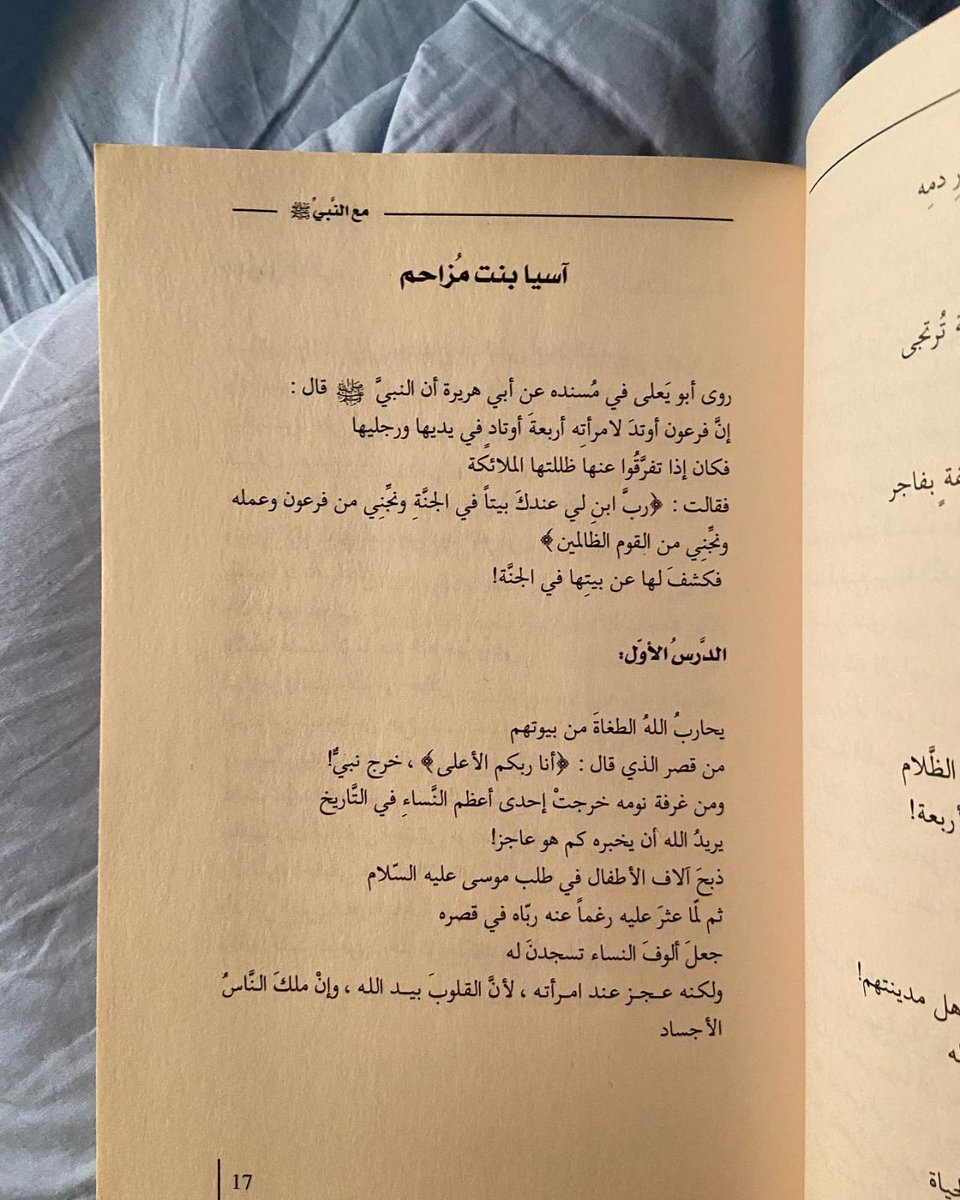 مع النَّبيِّ ﷺ
آسيا بنت مُزاحم
روى أبو يَعلى في مُسنده عن أبي هريرة أن النبيَّ ﷺ قال :
إنَّ فرعون أوتدَ لامرأتِه أربعةَ أوتادٍ في يديها ورجليها
فكان إذا تفرَّقُوا عنها ظللتها الملائكة
فقالت : ﴿ربَّ ابنِ لي عندكَ بيتاً في الجنَّةِ ونجِّنِي من فرعون وعمله
ونجِّنِي من القوم الظالمين﴾
فكشفَ لها عن بيتِها في الجنَّة!
الدَّرسُ الأوّل:
يحاربُ اللهُ الطغاةَ من بيوتهم
من قصر الذي قال : ﴿أنا ربكم الأعلى﴾ ، خرج نبيٌّ!
ومن غرفة نومه خرجتْ إحدى أعظم النَّساءِ في التَّاريخ
يريدُ الله أن يخبره كم هو عاجز!
ذبحَ آلاف الأطفال في طلب موسى عليه السّلام
ثم لمّا عثرَ عليه رغماً عنه ربّاه في قصره
جعلَ ألوفَ النساء تسجدنَ له
ولكنه عجز عند امرأته ، لأنَّ القلوبَ بيد الله ، وإنْ ملكَ النَّاسُ
الأجساد
17
دمِه
تُرتجى
بفاجر
الظَّلام
أربعة!
مدينتهم!